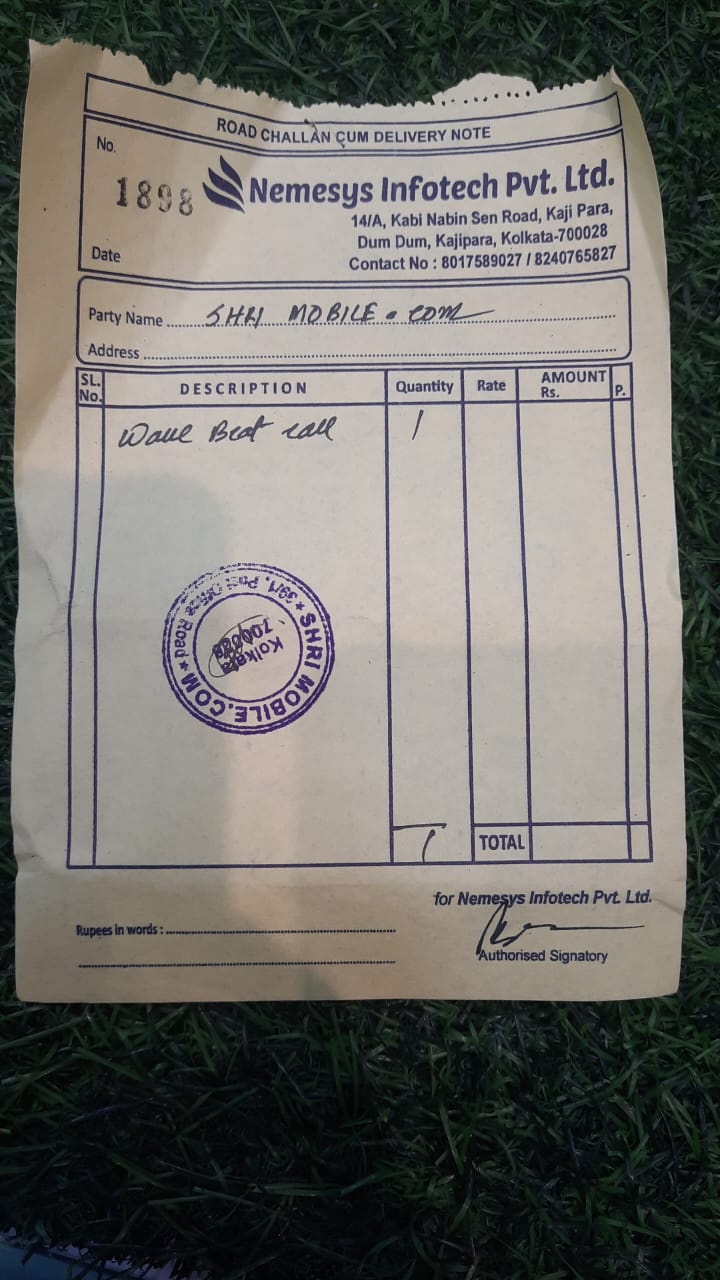 ROAD CHALLAN CUM DELIVERY NOTE
No.
1898
Nemesys Infotech Pvt. Ltd.
14/A, Kabi Nabin Sen Road, Kaji Para,
Dum Dum, Kajipara, Kolkata-700028
Date
Contact No : 8017589027 / 8240765827
Party Name SHRI MOBILE.COM
Address
SL. No. DESCRIPTION Quantity Rate AMOUNT Rs. P.
Wave Beat call 1
SHRI MOBILE.COM ★ 39/1, Post Office Road ★
Kolkata
1 TOTAL
for Nemesys Infotech Pvt. Ltd.
Rupees in words :
Authorised Signatory